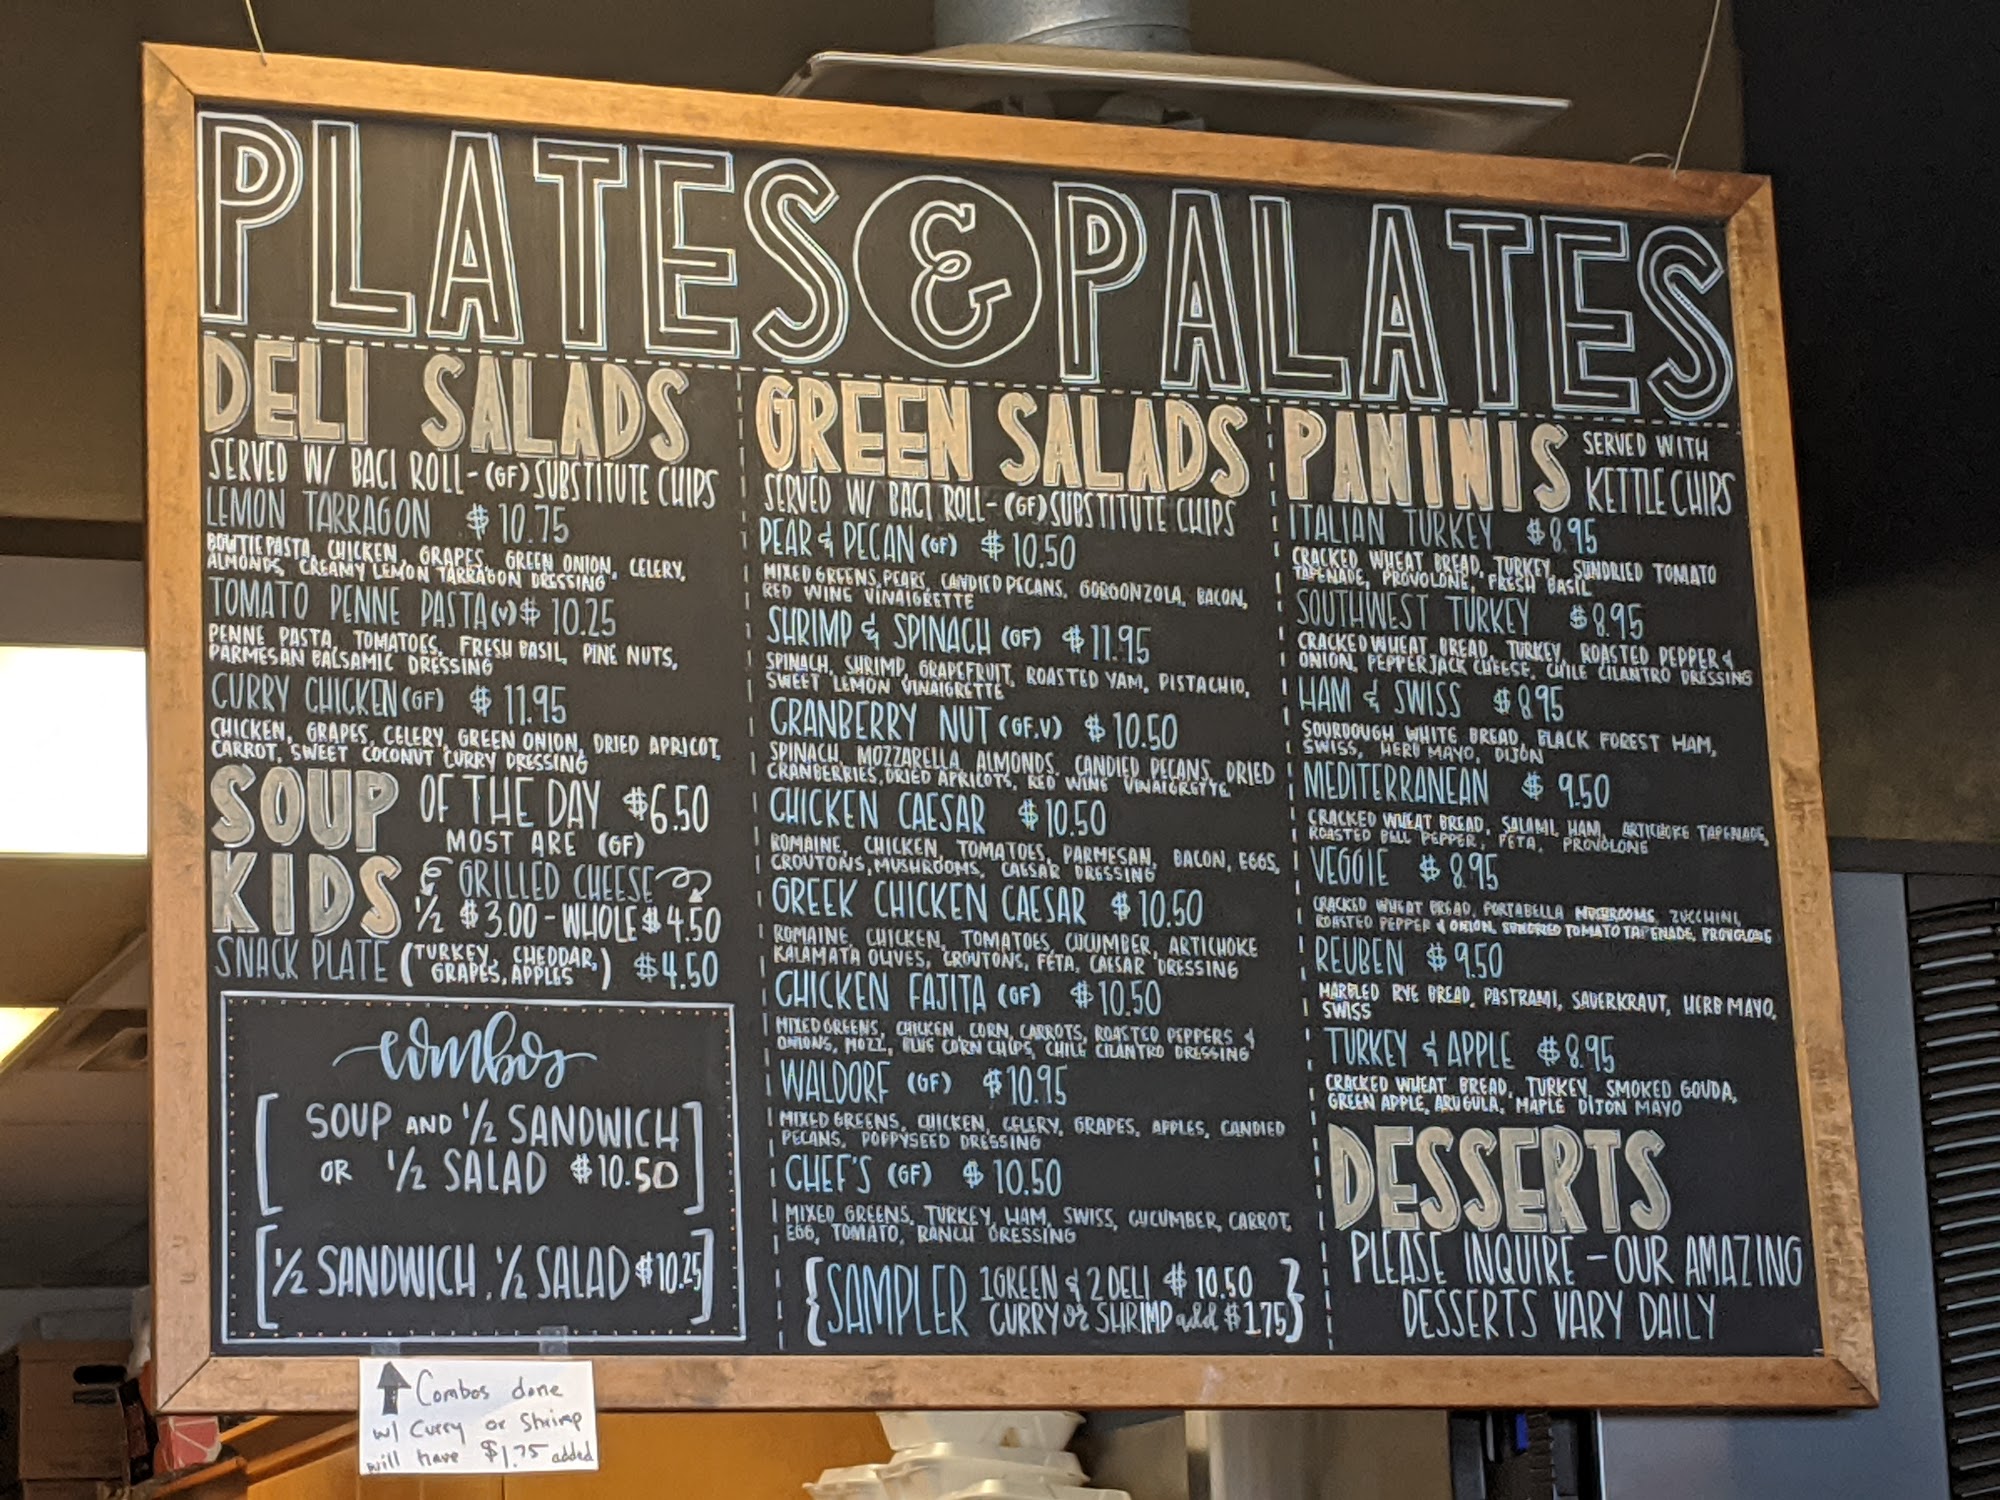 PLATES & PALATES
DELI SALADS
SERVED W/ BACI ROLL - (GF) SUBSTITUTE CHIPS
LEMON TARRAGON $10.75
BOWTIE PASTA, CHICKEN, GRAPES, GREEN ONION, CELERY,
ALMONDS, CREAMY LEMON TARRAGON DRESSING
TOMATO PENNE PASTA (V) $10.25
PENNE PASTA, TOMATOES, FRESH BASIL, PINE NUTS,
PARMESAN BALSAMIC DRESSING
CURRY CHICKEN (GF) $11.95
CHICKEN, GRAPES, CELERY, GREEN ONION, DRIED APRICOT,
CARROT, SWEET COCONUT CURRY DRESSING
SOUP OF THE DAY $6.50
MOST ARE (GF)
KIDS GRILLED CHEESE
1/2 $3.00 - WHOLE $4.50
SNACK PLATE (TURKEY, CHEDDAR, GRAPES, APPLES) $4.50
combos
[SOUP AND 1/2 SANDWICH
OR 1/2 SALAD $10.50]
[1/2 SANDWICH, 1/2 SALAD $10.25]
GREEN SALADS
SERVED W/ BACI ROLL - (GF) SUBSTITUTE CHIPS
PEAR & PECAN (GF) $10.50
MIXED GREENS, PEARS, CANDIED PECANS, GORGONZOLA, BACON,
RED WINE VINAIGRETTE
SHRIMP & SPINACH (GF) $11.95
SPINACH, SHRIMP, GRAPEFRUIT, ROASTED YAM, PISTACHIO,
SWEET LEMON VINAIGRETTE
CRANBERRY NUT (GF,V) $10.50
SPINACH, MOZZARELLA, ALMONDS, CANDIED PECANS, DRIED
CRANBERRIES, DRIED APRICOTS, RED WINE VINAIGRETTE
CHICKEN CAESAR $10.50
ROMAINE, CHICKEN, TOMATOES, PARMESAN, BACON, EGGS,
CROUTONS, MUSHROOMS, CAESAR DRESSING
GREEK CHICKEN CAESAR $10.50
ROMAINE, CHICKEN, TOMATOES, CUCUMBER, ARTICHOKE
KALAMATA OLIVES, CROUTONS, FETA, CAESAR DRESSING
CHICKEN FAJITA (GF) $10.50
MIXED GREENS, CHICKEN, CORN, CARROTS, ROASTED PEPPERS &
ONIONS, MOZZ, BLUE CORN CHIPS, CHILE CILANTRO DRESSING
WALDORF (GF) $10.95
MIXED GREENS, CHICKEN, CELERY, GRAPES, APPLES, CANDIED
PECANS, POPPYSEED DRESSING
CHEF'S (GF) $10.50
MIXED GREENS, TURKEY, HAM, SWISS, CUCUMBER, CARROT,
EGG, TOMATO, RANCH DRESSING
{SAMPLER 1 GREEN & 2 DELI $10.50
CURRY or SHRIMP add $1.75}
PANINIS SERVED WITH
KETTLE CHIPS
ITALIAN TURKEY $8.95
CRACKED WHEAT BREAD, TURKEY, SUNDRIED TOMATO
TAPENADE, PROVOLONE, FRESH BASIL
SOUTHWEST TURKEY $8.95
CRACKED WHEAT BREAD, TURKEY, ROASTED PEPPER &
ONION, PEPPERJACK CHEESE, CHILE CILANTRO DRESSING
HAM & SWISS $8.95
SOURDOUGH WHITE BREAD, BLACK FOREST HAM,
SWISS, HERB MAYO, DIJON
MEDITERRANEAN $9.50
CRACKED WHEAT BREAD, SALAMI, HAM, ARTICHOKE TAPENADE,
ROASTED BELL PEPPER, FETA, PROVOLONE
VEGGIE $8.95
CRACKED WHEAT BREAD, PORTABELLA MUSHROOMS, ZUCCHINI,
ROASTED PEPPER & ONION, SUNDRIED TOMATO TAPENADE, PROVOLONE
REUBEN $9.50
MARBLED RYE BREAD, PASTRAMI, SAUERKRAUT, HERB MAYO,
SWISS
TURKEY & APPLE $8.95
CRACKED WHEAT BREAD, TURKEY, SMOKED GOUDA,
GREEN APPLE, ARUGULA, MAPLE DIJON MAYO
DESSERTS
PLEASE INQUIRE - OUR AMAZING
DESSERTS VARY DAILY
Combos done
w/ Curry or Shrimp
will have $1.75 added